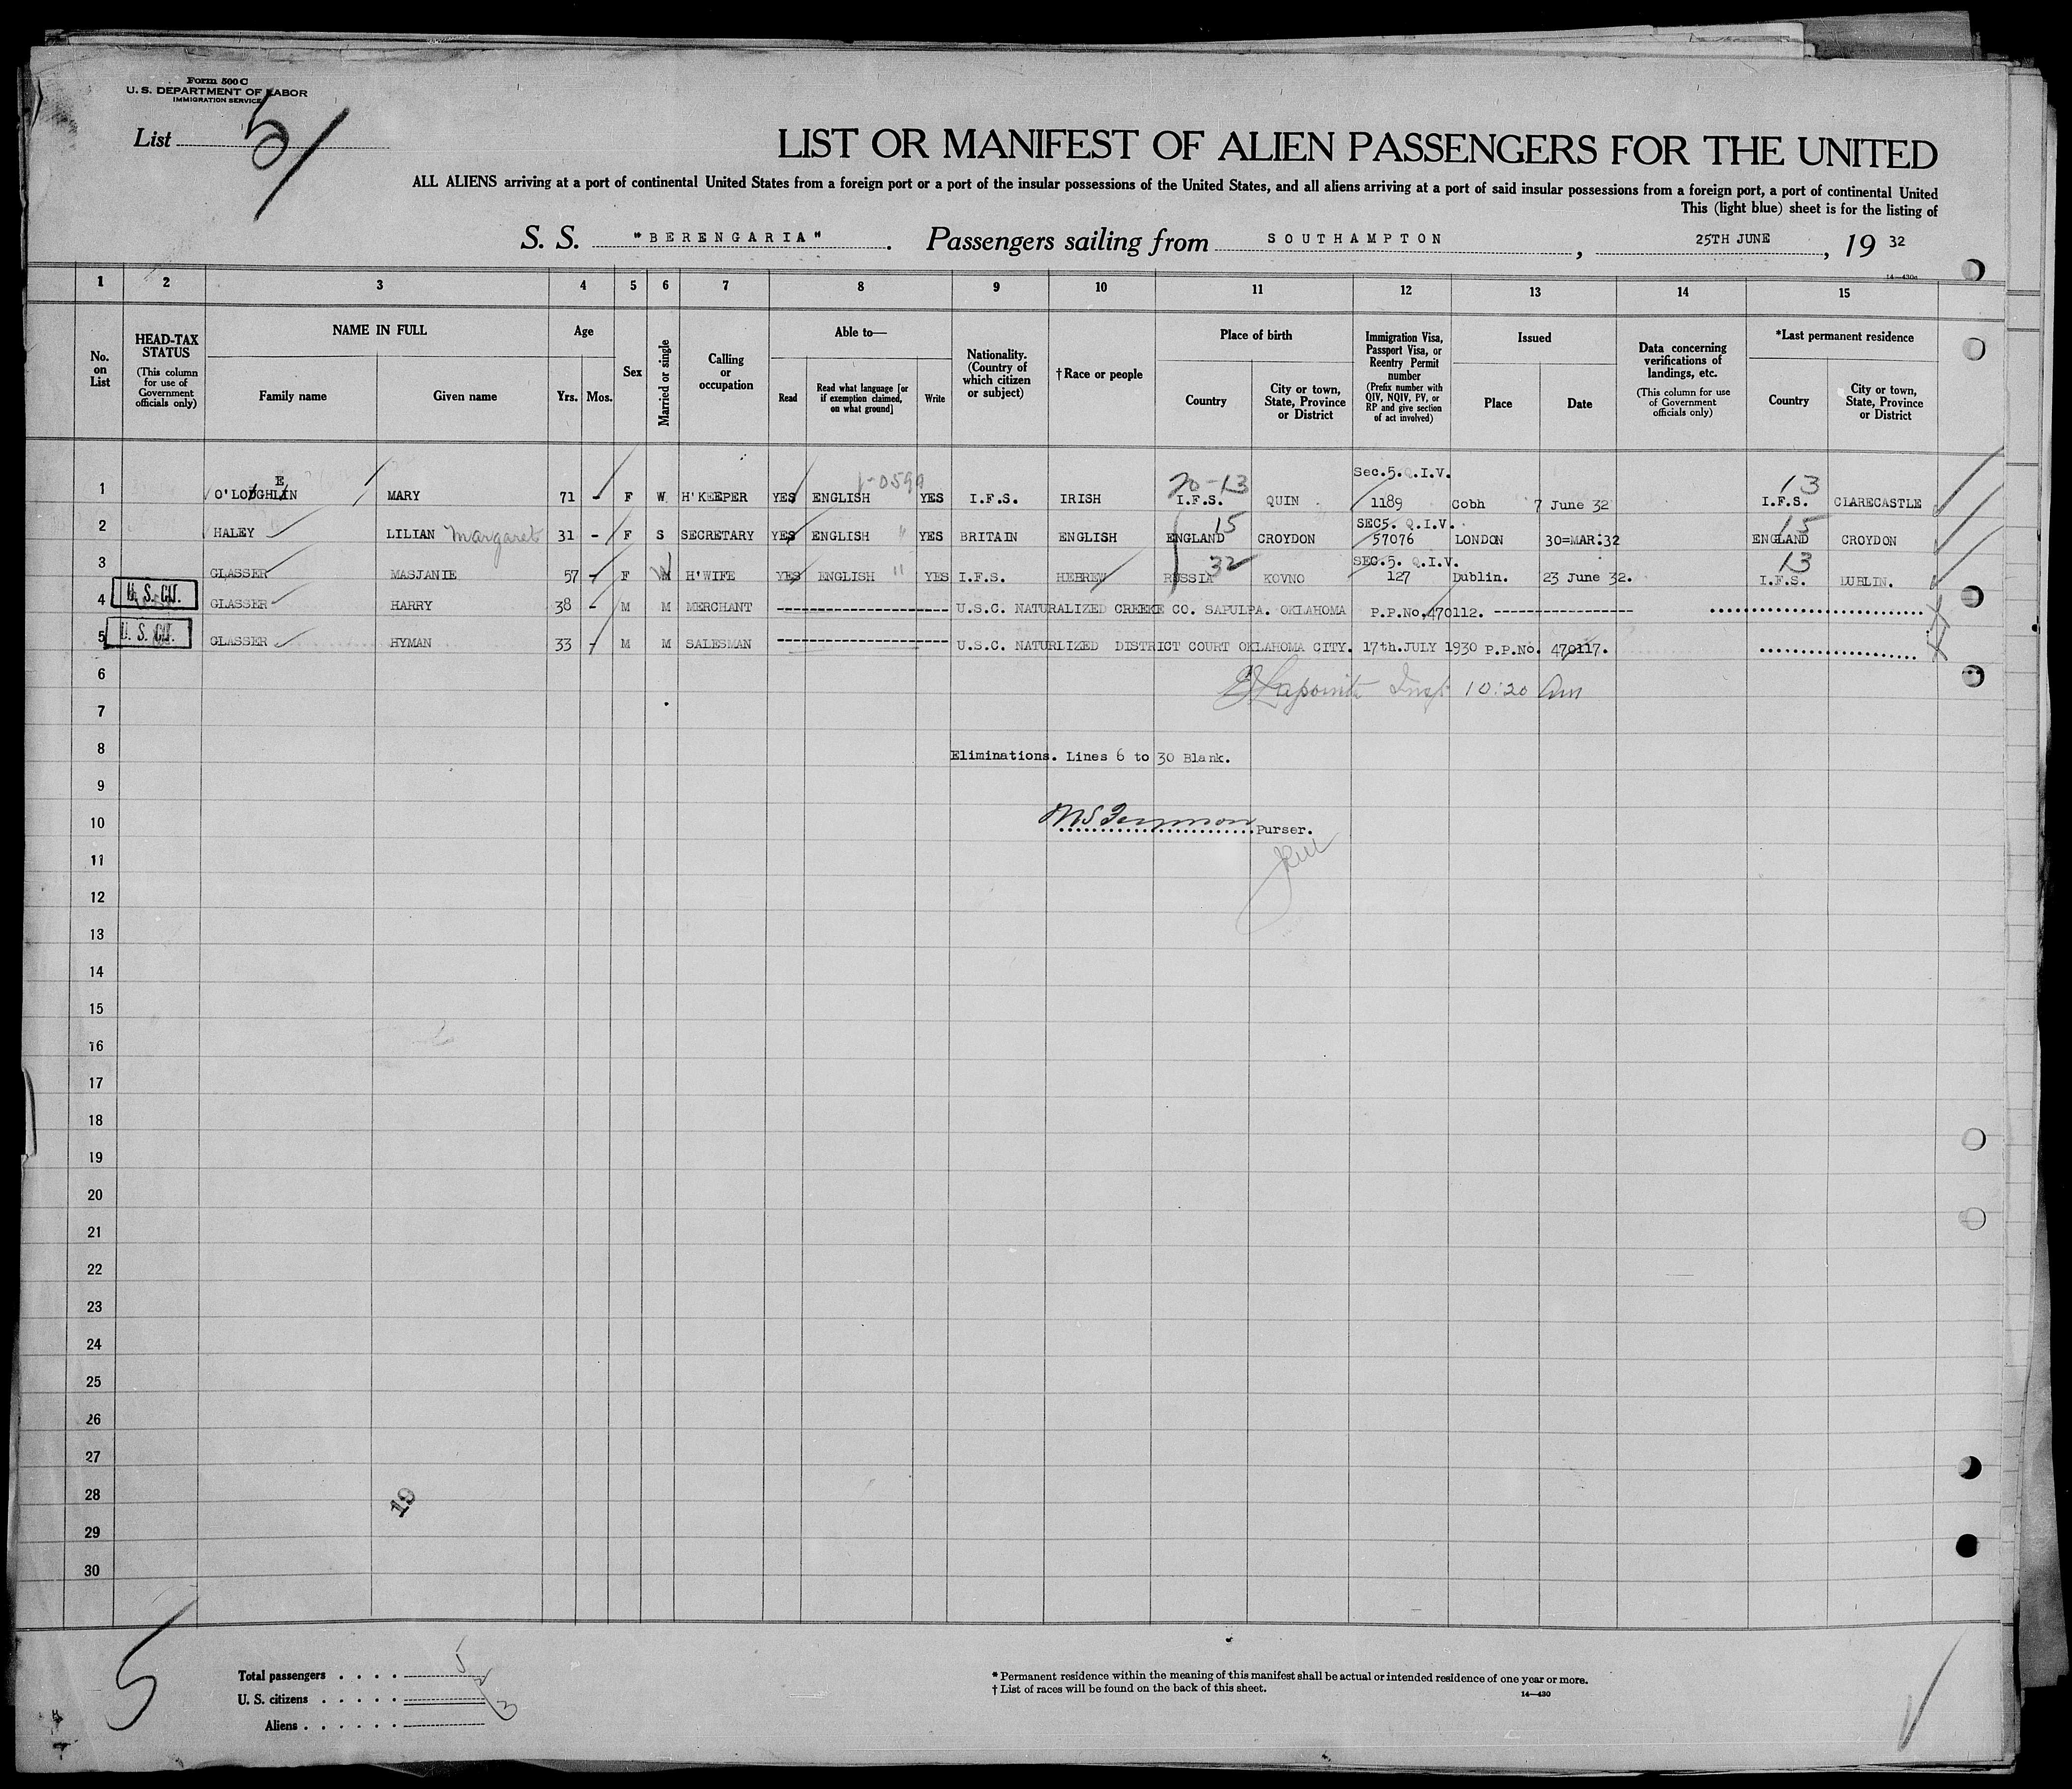 Form 500 C
U. S. DEPARTMENT OF LABOR
IMMIGRATION SERVICE
List 5
LIST OR MANIFEST OF ALIEN PASSENGERS FOR THE UNITED
ALL ALIENS arriving at a port of continental United States from a foreign port or a port of the insular possessions of the United States, and all aliens arriving at a port of said insular possessions from a foreign port, a port of continental United
This (light blue) sheet is for the listing of
S. S. "BERENGARIA". Passengers sailing from SOUTHAMPTON, 25TH JUNE, 19 32
14—430a
1 2 3 4 5 6 7 8 9 10 11 12 13 14 15
No. on List
HEAD-TAX STATUS (This column for use of Government officials only)
NAME IN FULL
Family name Given name
Age
Yrs. Mos.
Sex
Married or single
Calling or occupation
Able to—
Read Read what language [or if exemption claimed, on what ground] Write
Nationality. (Country of which citizen or subject)
†Race or people
Place of birth
Country City or town, State, Province or District
Immigration Visa, Passport Visa, or Reentry Permit number (Prefix number with QIV, NQIV, PV, or RP and give section of act involved)
Issued
Place Date
Data concerning verifications of landings, etc. (This column for use of Government officials only)
*Last permanent residence
Country City or town, State, Province or District
E 1-0599 20-13 Sec.5. Q.I.V. 13
1 O'LOUGHLIN MARY 71 - F W H'KEEPER YES ENGLISH YES I.F.S. IRISH I.F.S. QUIN 1189 Cobh 7 June 32 I.F.S. CLARECASTLE
15 SEC5. Q.I.V. 15
2 HALEY LILIAN Margaret 31 - F S SECRETARY YES ENGLISH " YES BRITAIN ENGLISH ENGLAND CROYDON 57076 LONDON 30=MAR:32 ENGLAND CROYDON
32 SEC.5. Q.I.V. 13
3 GLASSER MASJANIE 57 - F M W H'WIFE YES ENGLISH " YES I.F.S. HEBREW RUSSIA KOVNO 127 Dublin. 23 June 32. I.F.S. DUBLIN.
4 U. S. CIT. GLASSER HARRY 38 - M M MERCHANT ---------- U.S.C. NATURALIZED CREEKE CO. SAPULPA. OKLAHOMA P.P.No.470112. ----------
5 U. S. CIT. GLASSER HYMAN 33 - M M SALESMAN ---------- U.S.C. NATURLIZED DISTRICT COURT OKLAHOMA CITY. 17th.JULY 1930 P.P.No. 470117.
6 Lapointe Insp 10:20 Am
7
8 Eliminations. Lines 6 to 30 Blank.
9
10 Purser.
11
12
13
14
15
16
17
18
19
20
21
22
23
24
25
26
27
28 19
29
30
5
Total passengers . . . . 5
U. S. citizens . . . . . 2
Aliens . . . . . . 3
* Permanent residence within the meaning of this manifest shall be actual or intended residence of one year or more.
† List of races will be found on the back of this sheet.
14—430